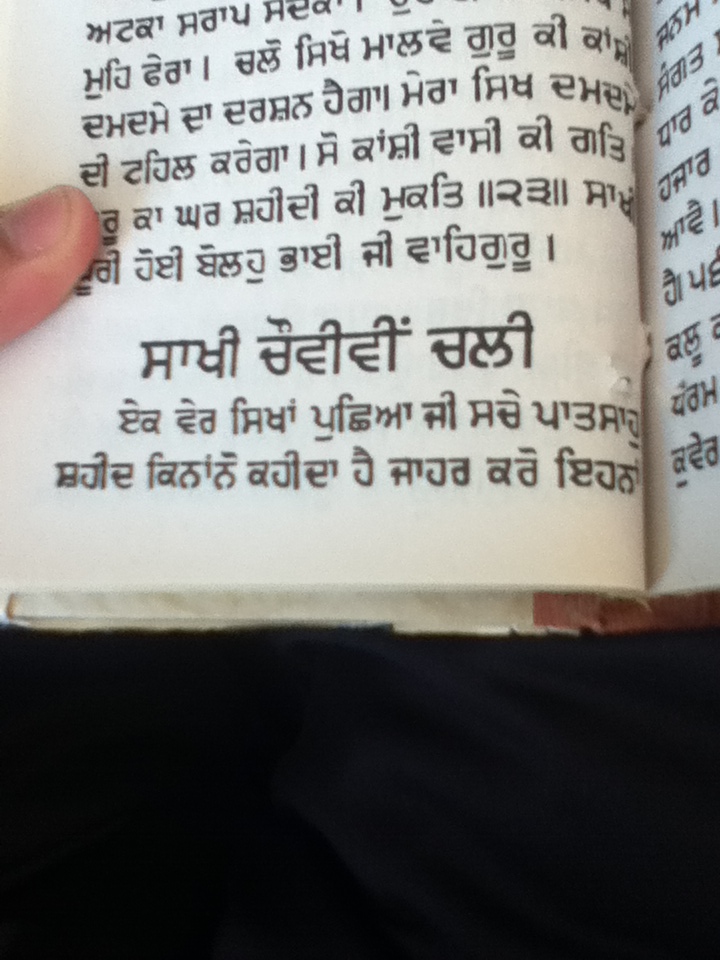 ਅਟਕਾ ਸਰਾਪ ਸਦਕਾ।
ਮੁਹਿ ਫੇਰਾ। ਚਲੋ ਸਿਖੋ ਮਾਲਵੇ ਗੁਰੂ ਕੀ ਕਾਂਸ਼ੀ
ਦਮਦਮੇ ਦਾ ਦਰਸ਼ਨ ਹੈਗਾ। ਮੇਰਾ ਸਿਖ ਦਮਦਮੇ
ਦੀ ਟਹਿਲ ਕਰੇਗਾ। ਸੋ ਕਾਂਸ਼ੀ ਵਾਸੀ ਕੀ ਗਤਿ
ਕਾ ਘਰ ਸ਼ਹੀਦੀ ਕੀ ਮੁਕਤਿ ॥੨੩॥ ਸਾਖੀ
ਹੋਈ ਬੋਲਹੁ ਭਾਈ ਜੀ ਵਾਹਿਗੁਰੂ।
ਸਾਖੀ ਚੌਵੀਵੀਂ ਚਲੀ
ਏਕ ਵੇਰ ਸਿਖਾਂ ਪੁਛਿਆ ਜੀ ਸਚੇ ਪਾਤਸਾਹੁ
ਸ਼ਹੀਦ ਕਿਨਾਂਨੋ ਕਹੀਦਾ ਹੈ ਜਾਹਰ ਕਰੋ ਇਹਨਾਂ
ਜਨਮ
ਸੰਗਤ
ਧਾਰ ਕੇ
ਹਜਾਰ
ਆਵੈ।
ਹੈ।
ਕਲੂ
ਧਰਮ
ਕੁਵੇਰ